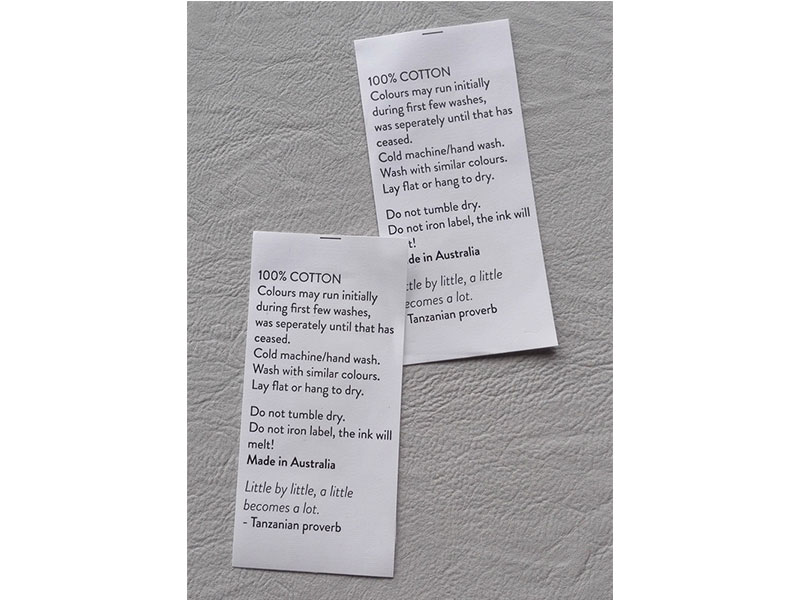 100% COTTON
Colours may run initially
during first few washes,
was seperately until that has
ceased.
Cold machine/hand wash.
Wash with similar colours.
Lay flat or hang to dry.
Do not tumble dry.
Do not iron label, the ink will
t!
de in Australia
tle by little, a little
ecomes a lot.
Tanzanian proverb
100% COTTON
Colours may run initially
during first few washes,
was seperately until that has
ceased.
Cold machine/hand wash.
Wash with similar colours.
Lay flat or hang to dry.
Do not tumble dry.
Do not iron label, the ink will
melt!
Made in Australia
Little by little, a little
becomes a lot.
- Tanzanian proverb